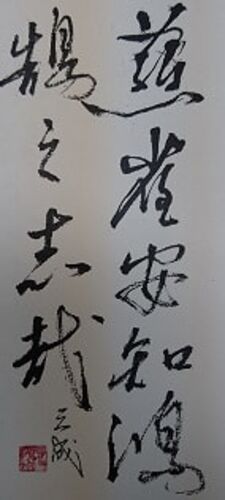 燕雀安知鴻
鵠之志哉
三成